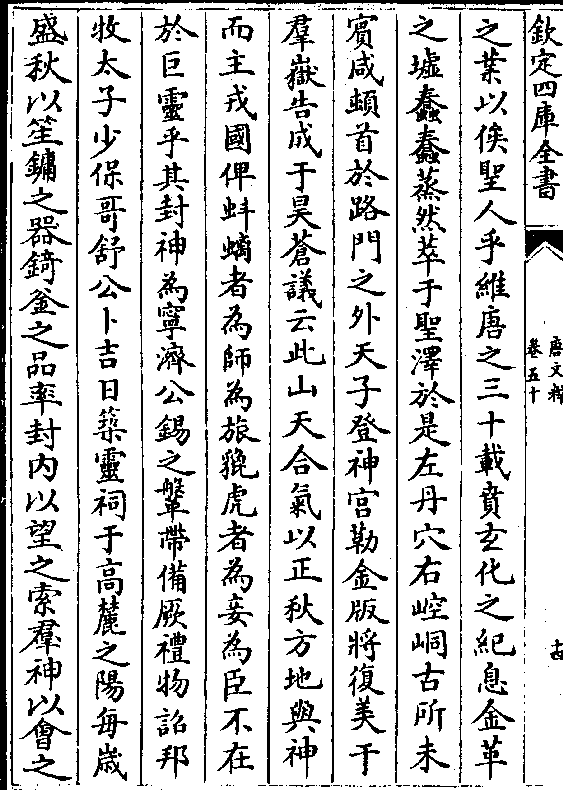 欽定四庫全書
唐文粹
卷五十
十四
之業以俟聖人乎維唐之三十載賁玄化之紀息金革
之墟蠢蠢蒸然萃于聖澤於是左丹穴右崆峒古所未
賓咸頓首於路門之外天子登神宮勒金版將復美于
羣嶽告成于昊蒼議云此山天合氣以正秋方地與神
而主戎國俾蚌螭者為師為旅貔虎者為妾為臣不在
於巨靈乎其封神為寧濟公錫之鞶帶備厥禮物詔邦
牧太子少保哥舒公卜吉日築靈祠于高麓之陽每歲
盛秋以笙鏞之器錡釜之品率封内以望之索羣神以會之